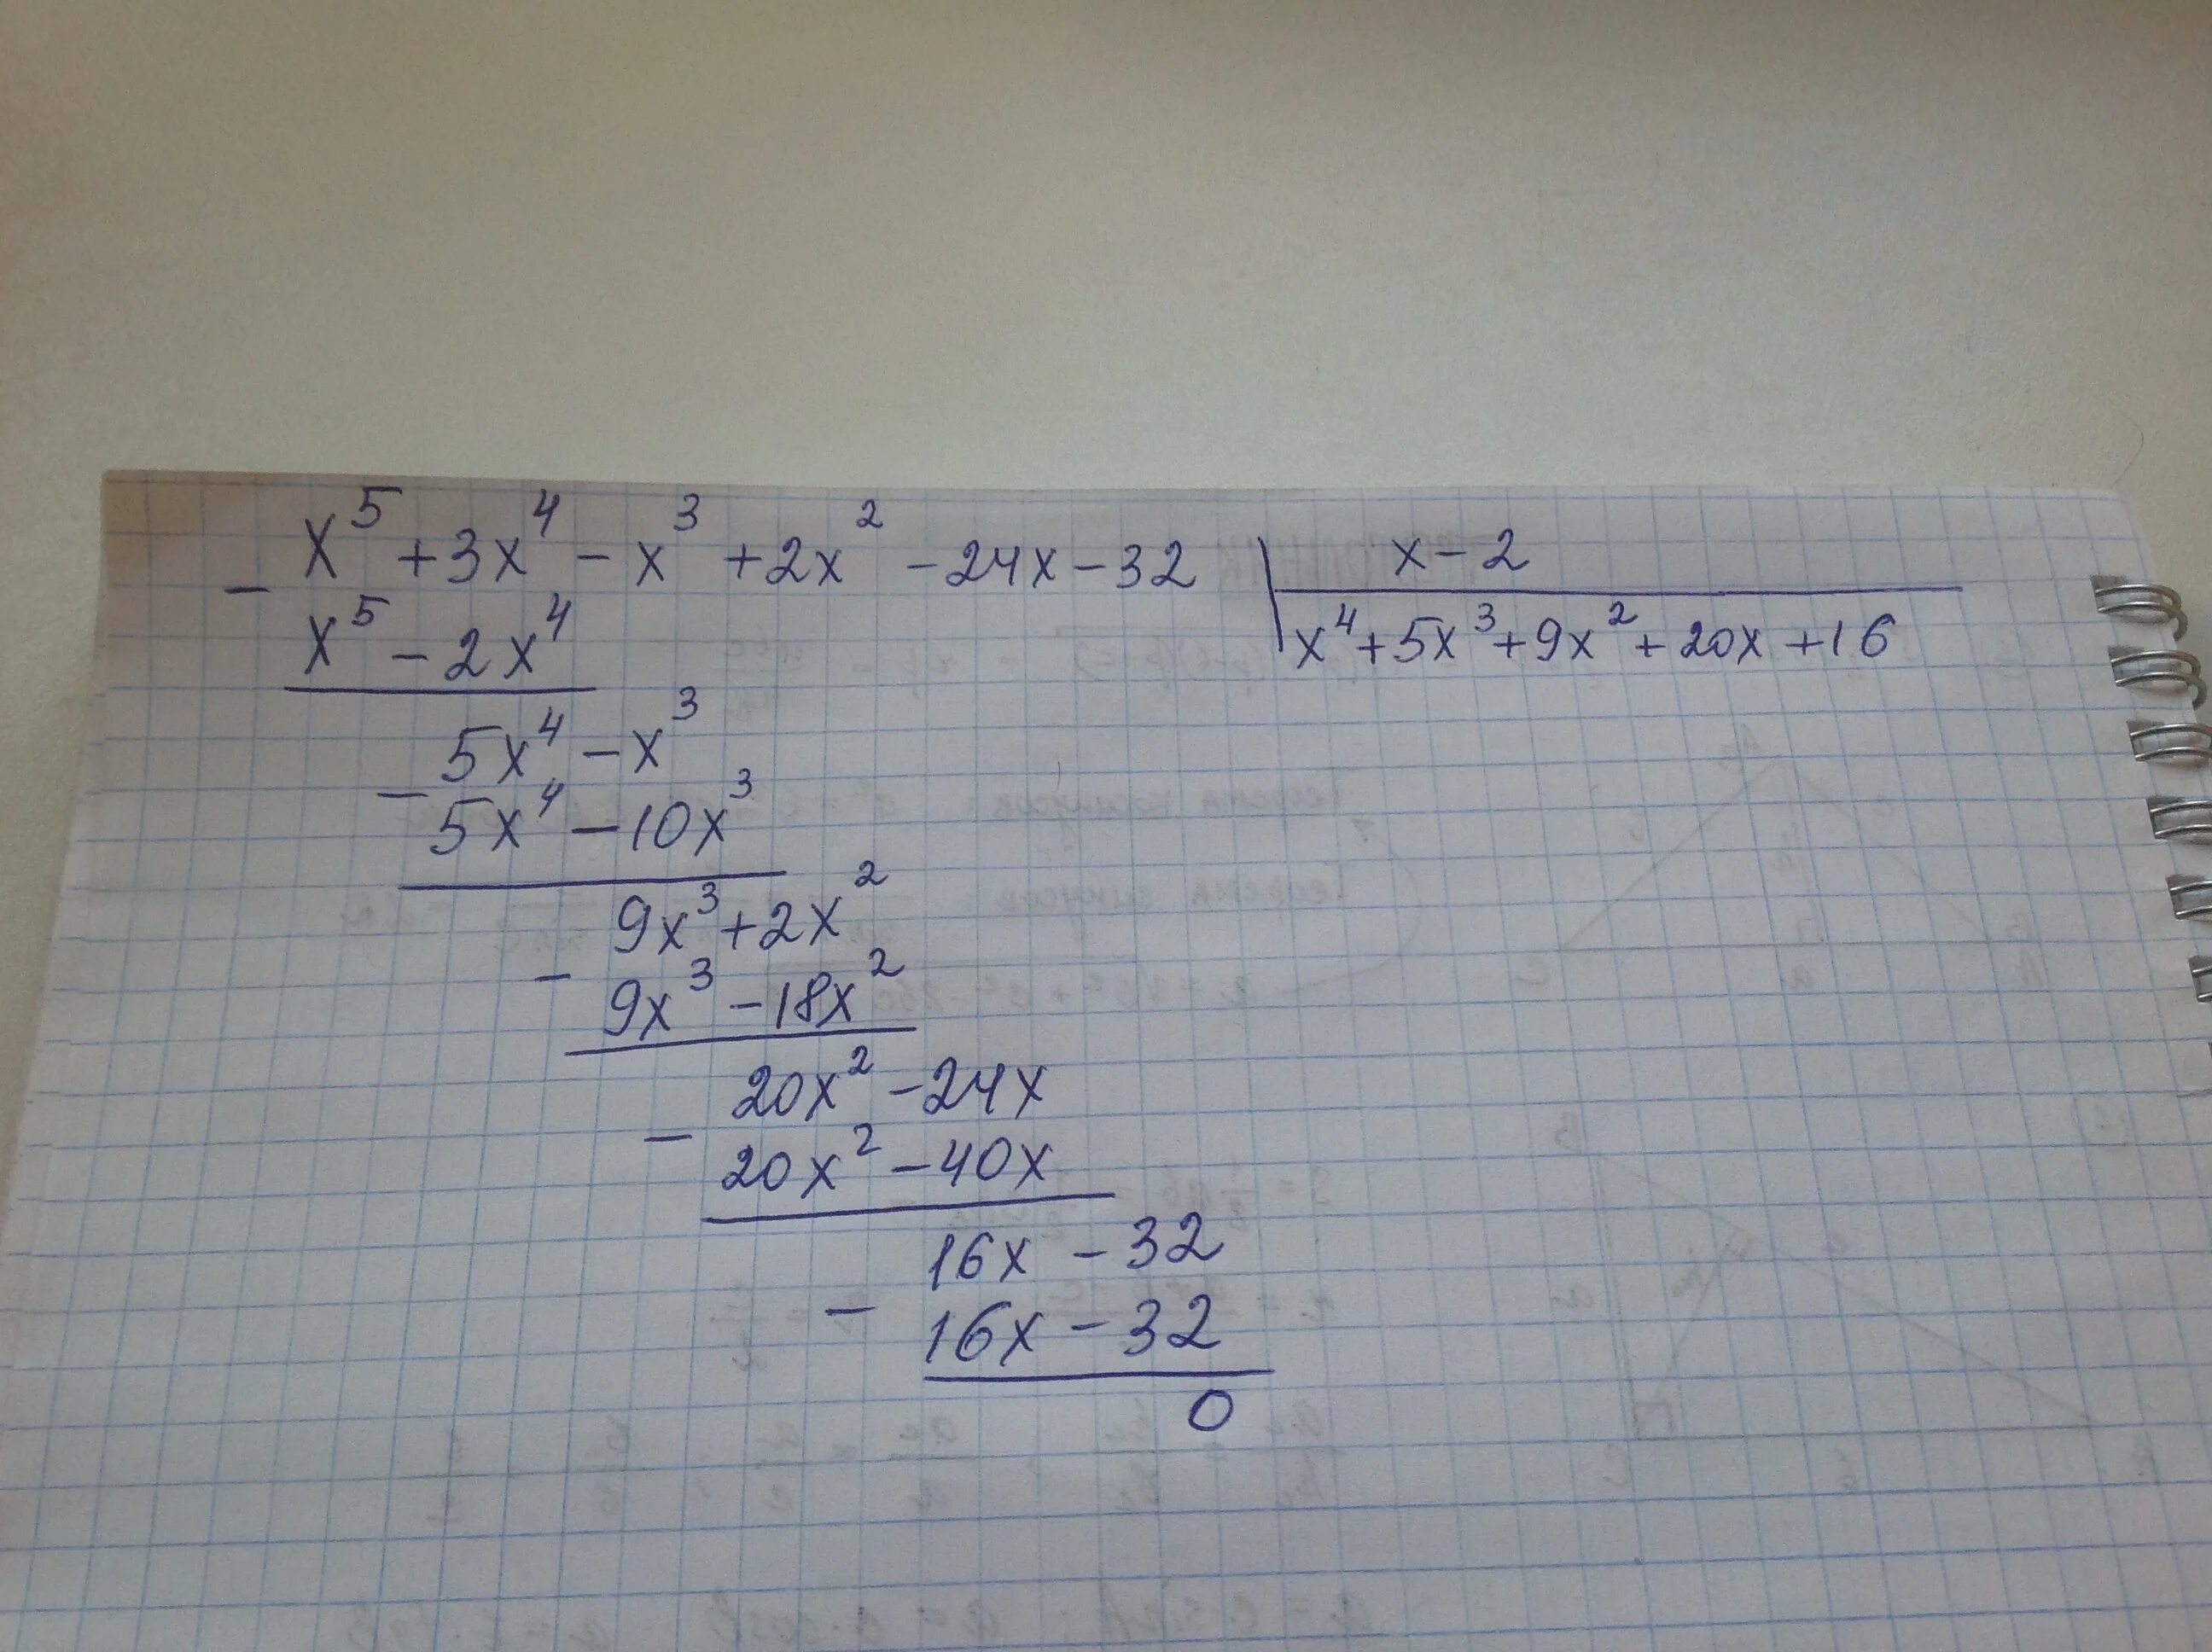 x⁵ + 3x⁴ - x³ + 2x² - 24x - 32 | x - 2
- x⁵ - 2x⁴ | x⁴ + 5x³ + 9x² + 20x + 16
5x⁴ - x³
- 5x⁴ - 10x³
9x³ + 2x²
- 9x³ - 18x²
20x² - 24x
- 20x² - 40x
16x - 32
- 16x - 32
0